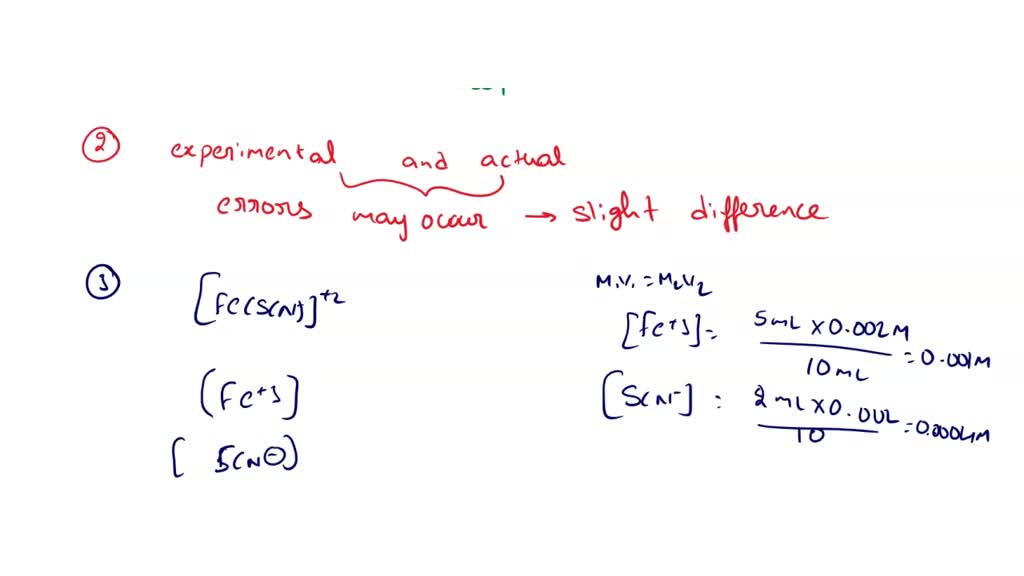 ② experimental and actual
errors may occur → slight difference
③ [Fe(SCN)]⁺²
M₁V₁ = M₂V₂
[Fe⁺³] = 5mL × 0.002M / 10mL = 0.001M
(Fe⁺³]
[SCN⁻] : 2mL × 0.002 / 10 = 0.0004M
[ SCN⊖)